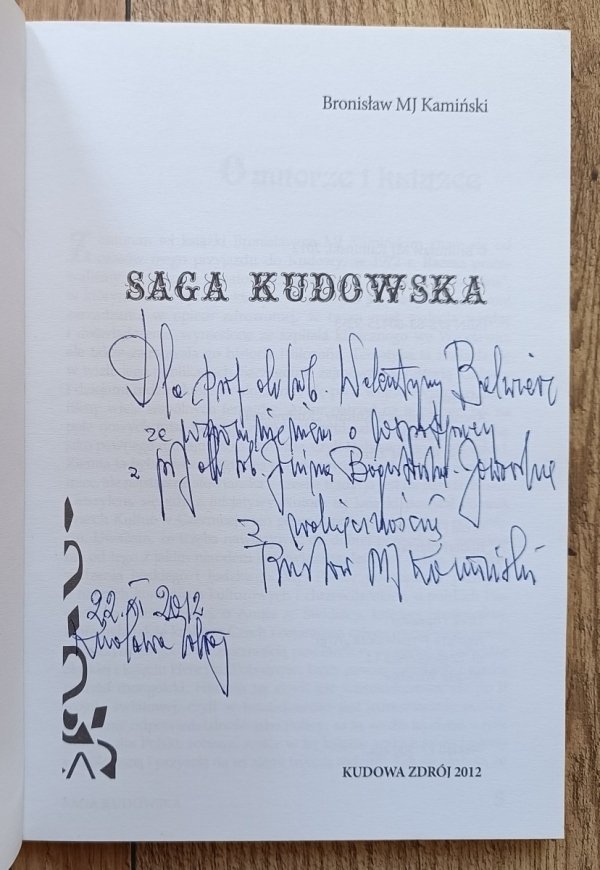 Bronisław MJ Kamiński
SAGA KUDOWSKA
Dla prof. dr hab. Walentyny Balwierz
ze wspomnieniem o
z prof. dr hab. Janiną Bogusławską-Jaworską
z wdzięcznością
MJ Kamiński
22.XI 2012
Kudowa Zdrój
KUDOWA ZDRÓJ 2012